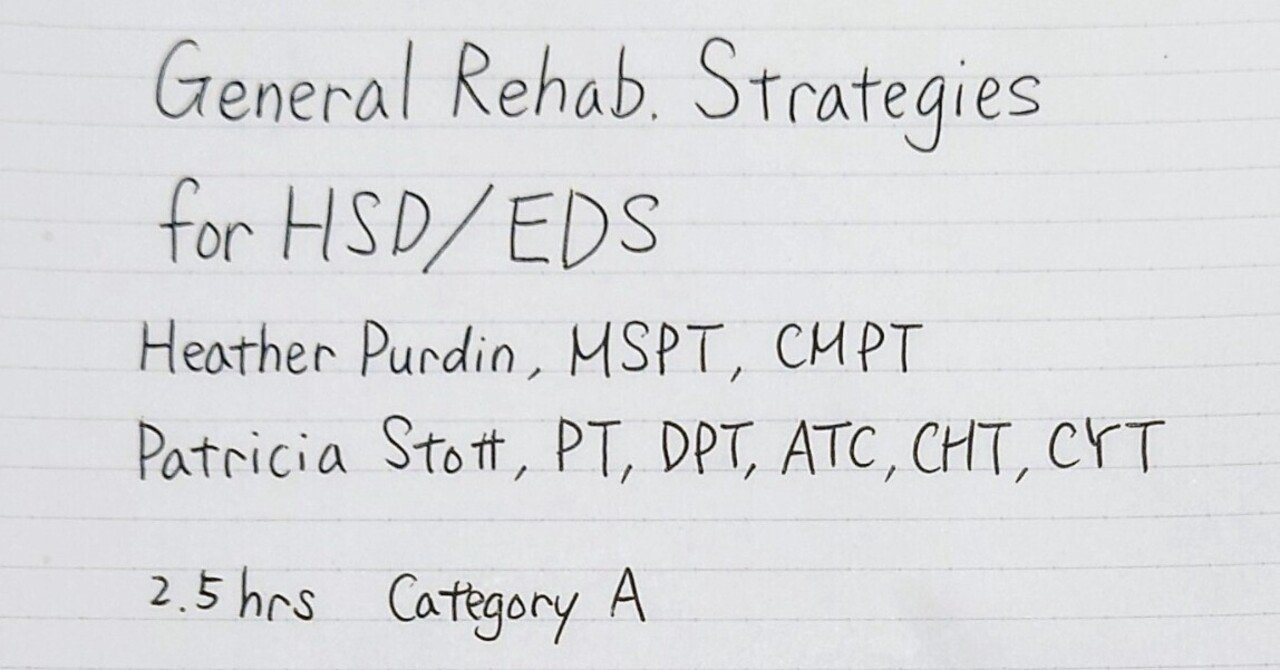 General Rehab. Strategies
for HSD/EDS
Heather Purdin, MSPT, CMPT
Patricia Stott, PT, DPT, ATC, CHT, CYT
2.5 hrs Category A